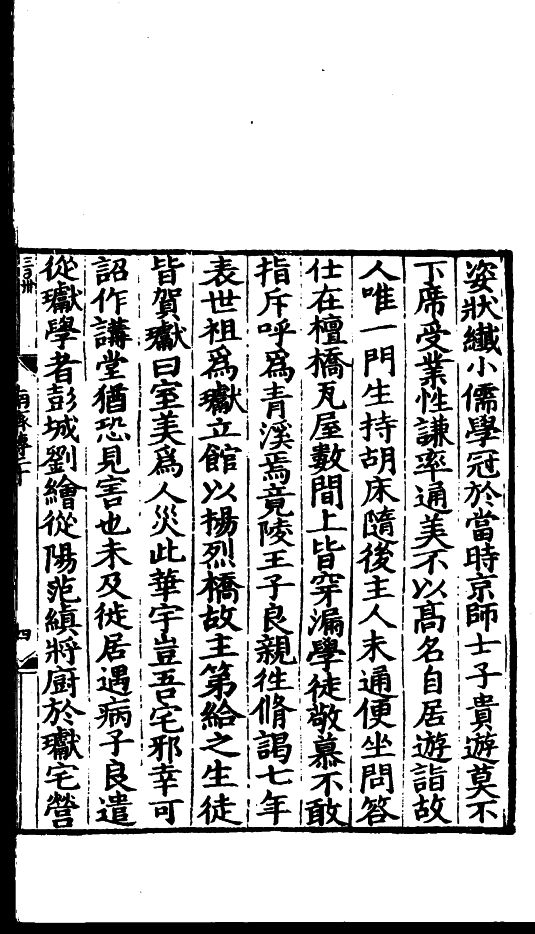 姿狀纎小儒學冠於當時京師士子貴遊莫不
下席受業性謙率通美不以髙名自居遊詣故
人唯一門生持胡床隨後主人未通便坐問答
仕在檀橋瓦屋數間上皆穿漏學徒敬慕不敢
指斥呼爲青溪焉竟陵王子良親徃脩謁七年
表世祖爲瓛立館以楊烈橋故主第給之生徒
皆賀瓛曰室美爲人災此華宇豈吾宅邪幸可
詔作講堂猶恐見害也未及徙居遇病子良遣
從瓛學者彭城劉繪從陽范縝將厨於瓛宅營
四